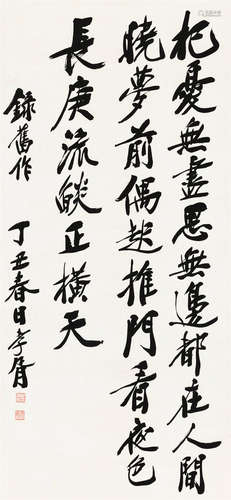 杞憂無盡思無邊都在人間
曉夢前偶起推門看夜色
長庚流燄正橫天
錄舊作
丁丑春日孝胥